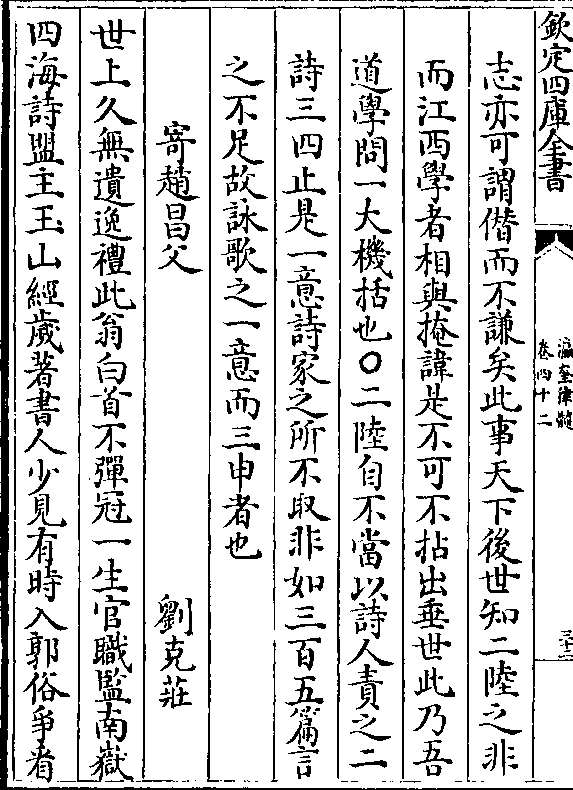 欽定四庫全書
瀛奎律髓
卷四十二
三十二
志亦可謂僭而不謙矣此事天下後世知二陸之非
而江西學者相與掩諱是不可不拈出垂世此乃吾
道學問一大機括也〇二陸自不當以詩人責之二
詩三四止是一意詩家之所不取非如三百五篇言
之不足故詠歌之一意而三申者也
寄趙昌父 劉克莊
世上久無遺逸禮此翁白首不彈冠一生官職監南嶽
四海詩盟主玉山經歲著書人少見有時入郭俗爭看